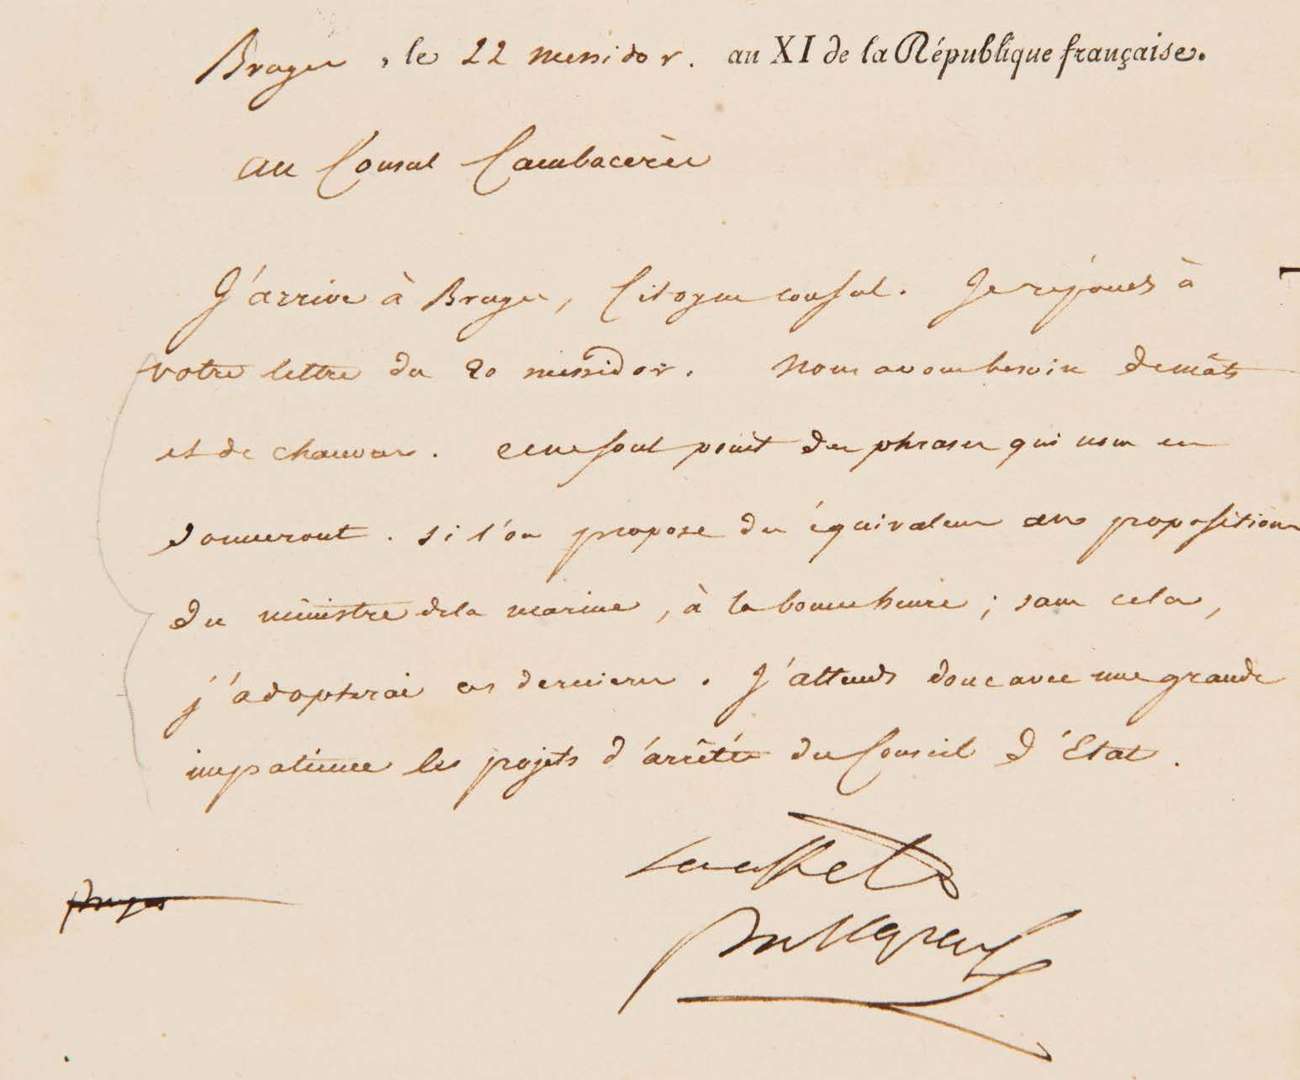 Bruges, le 22 messidor. an XI de la République française.
au Consul Cambacérès
J'arrive à Bruges, Citoyen consul. Je réponds à
votre lettre du 20 messidor. Nous avons besoin de mâts
et de chanvres. Ce ne sont point des phrases qui nous en
donneront. si l'on propose des équivalens aux propositions
du ministre de la marine, à la bonne heure ; sans cela,
j'adopterai ces dernieres. J'attends donc avec une grande
impatience les projets d'arrêtés du Conseil d'Etat.
Bruges